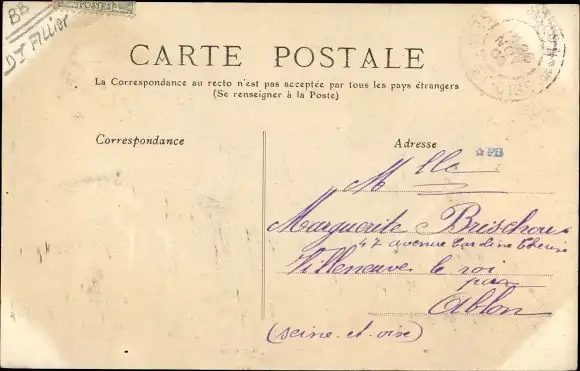 BB
Dt Allier
POSTES
CARTE POSTALE
La Correspondance au recto n'est pas acceptée par tous les pays étrangers
(Se renseigner à la Poste)
Correspondance
Adresse
☆ PB
Mlle
Marguerite Brischoux
47 avenue Caroline Thérèse
Villeneuve le roi
par
Ablon
(seine-et-oise)